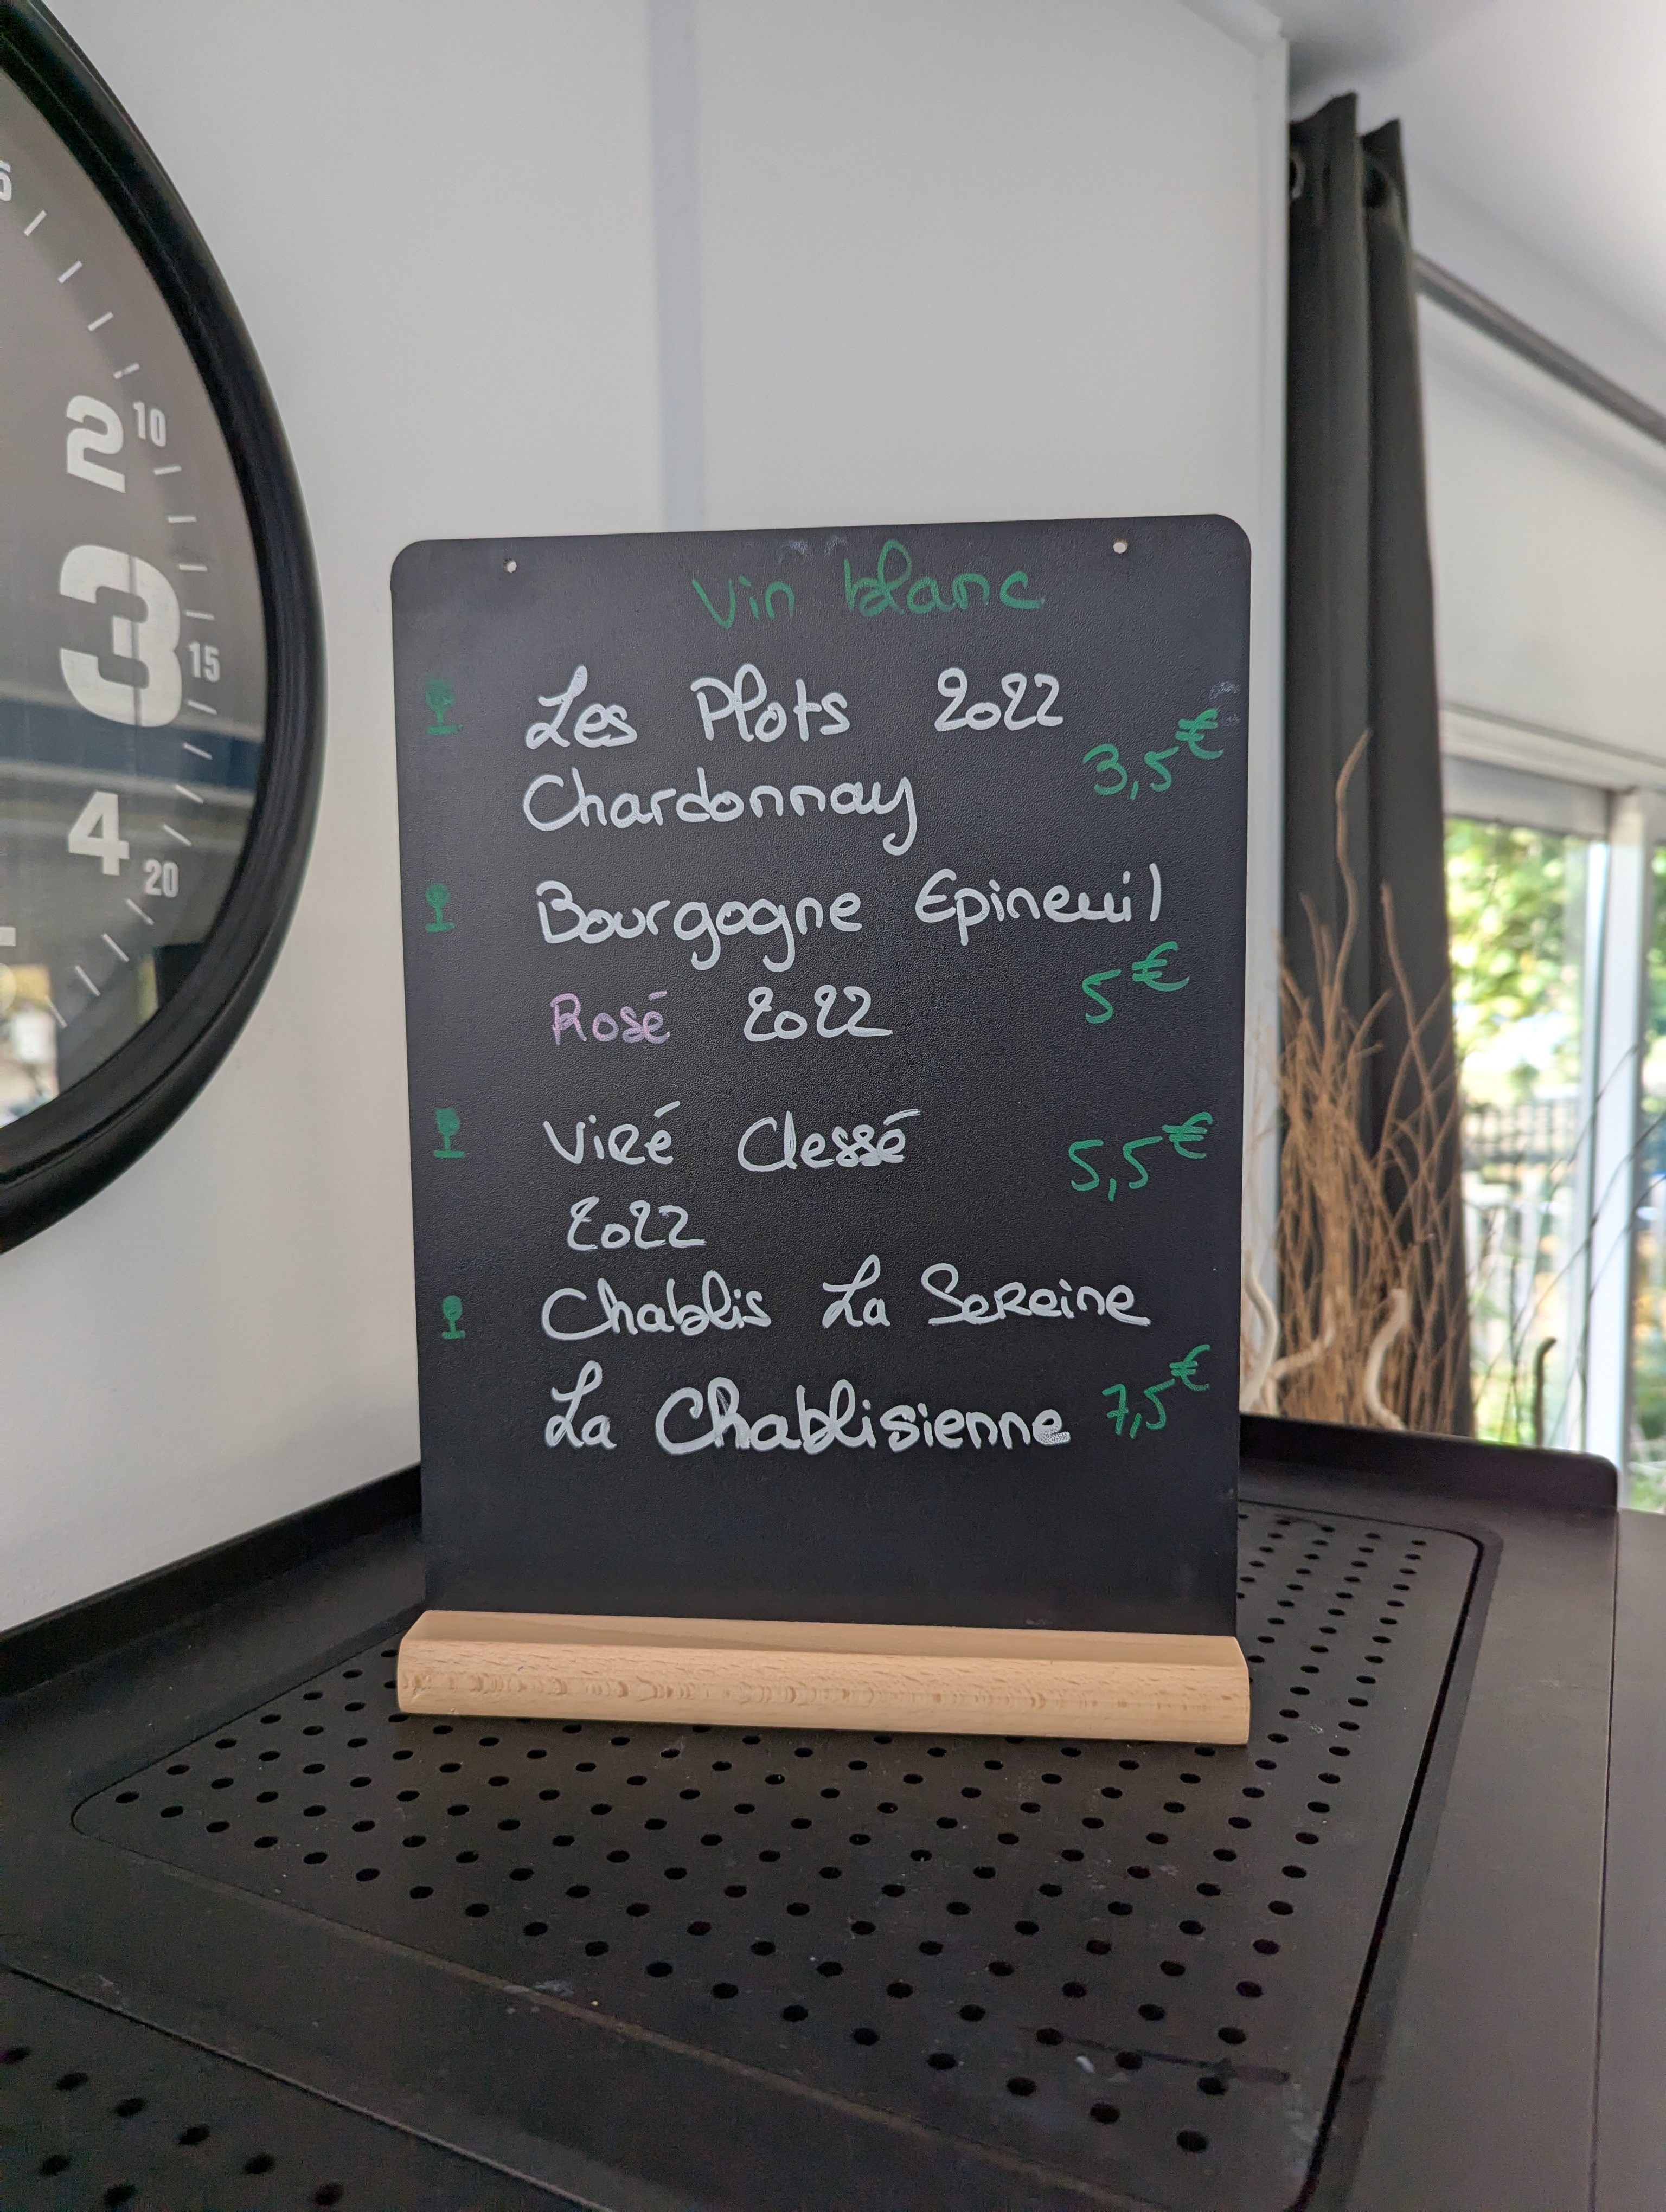 2
10
3
15
4
20
Vin blanc
Les Plots 2022
3,5€
Chardonnay
Bourgogne Epineuil
5€
Rosé 2022
Viré Clessé
5,5€
2022
Chablis La Sereine
La Chablisienne 7,5€